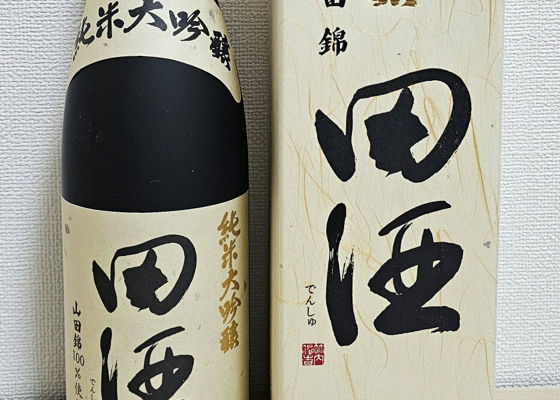 純米大吟醸
田酒
純米大吟醸
山田錦100%使
でんし
田錦
田酒
でんしゅ